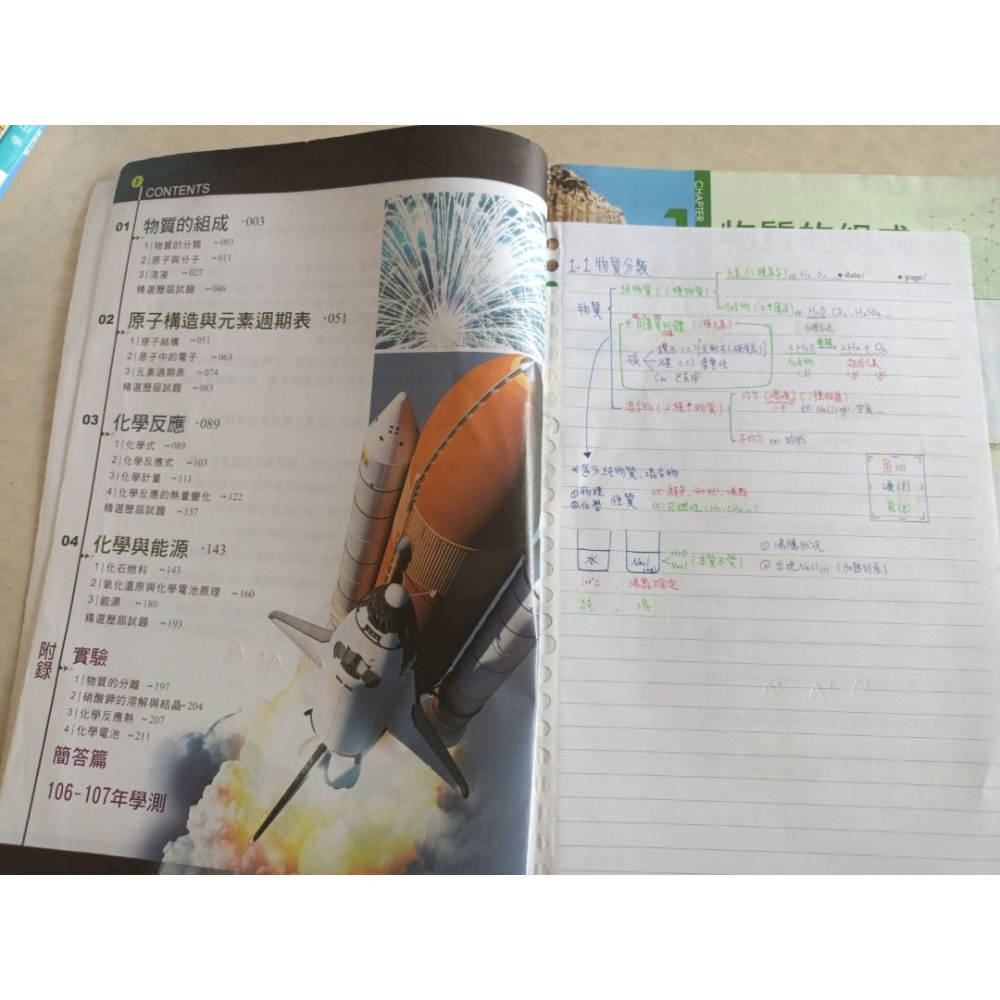 CONTENTS
01 物質的組成 ·003
1|物質的分類 --003
2|原子與分子 --011
3|溶液 --027
精選歷屆試題 --046
02 原子構造與元素週期表 ·051
1|原子結構 --051
2|原子中的電子 --063
3|元素週期表 --074
精選歷屆試題 --083
03 化學反應 ·089
1|化學式 --089
2|化學反應式 --103
3|化學計量 --111
4|化學反應的熱量變化 --122
精選歷屆試題 --137
04 化學與能源 ·143
1|化石燃料 --143
2|氧化還原與化學電池原理 --160
3|能源 --180
精選歷屆試題 --193
附錄
實驗
1|物質的分離 --197
2|硝酸鉀的溶解與結晶--204
3|化學反應熱 --207
4|化學電池 --211
簡答篇
106-107年學測
CHAPTER
1 物質的組成
1-1 物質分類
◆date/ ◆page/
物質
純物質(1種物質)
元素(1種原子)
化合物(2↑原子) ex. H2O. CO2. H2SO4
同素異形體 (1種元素)
碳
鑽石 (C)
石墨 (C) 導電性
C60 巴克球
2H2O 2H2 + O2
化合物
混合物(2種↑物質)
均勻(溶液)
ex. NaCl(aq). 空氣
不均勻 ex.
*區分純物質.混合物
①物理
②化學 性質
ex. 顏色、形狀、沸點
ex. 可燃性
固(s)
液(l)
氣(g)
水
NaCl(aq)
H2O
NaCl (本質不變)
①沸騰狀況
②出現NaCl(s)
100℃ . 沸點不固定
純 . 混